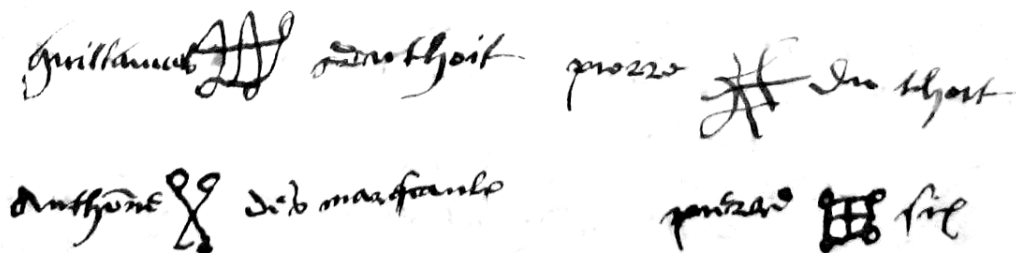 guillaume du thoit pierre du thoit
Anthõne des marscaulx pierre six